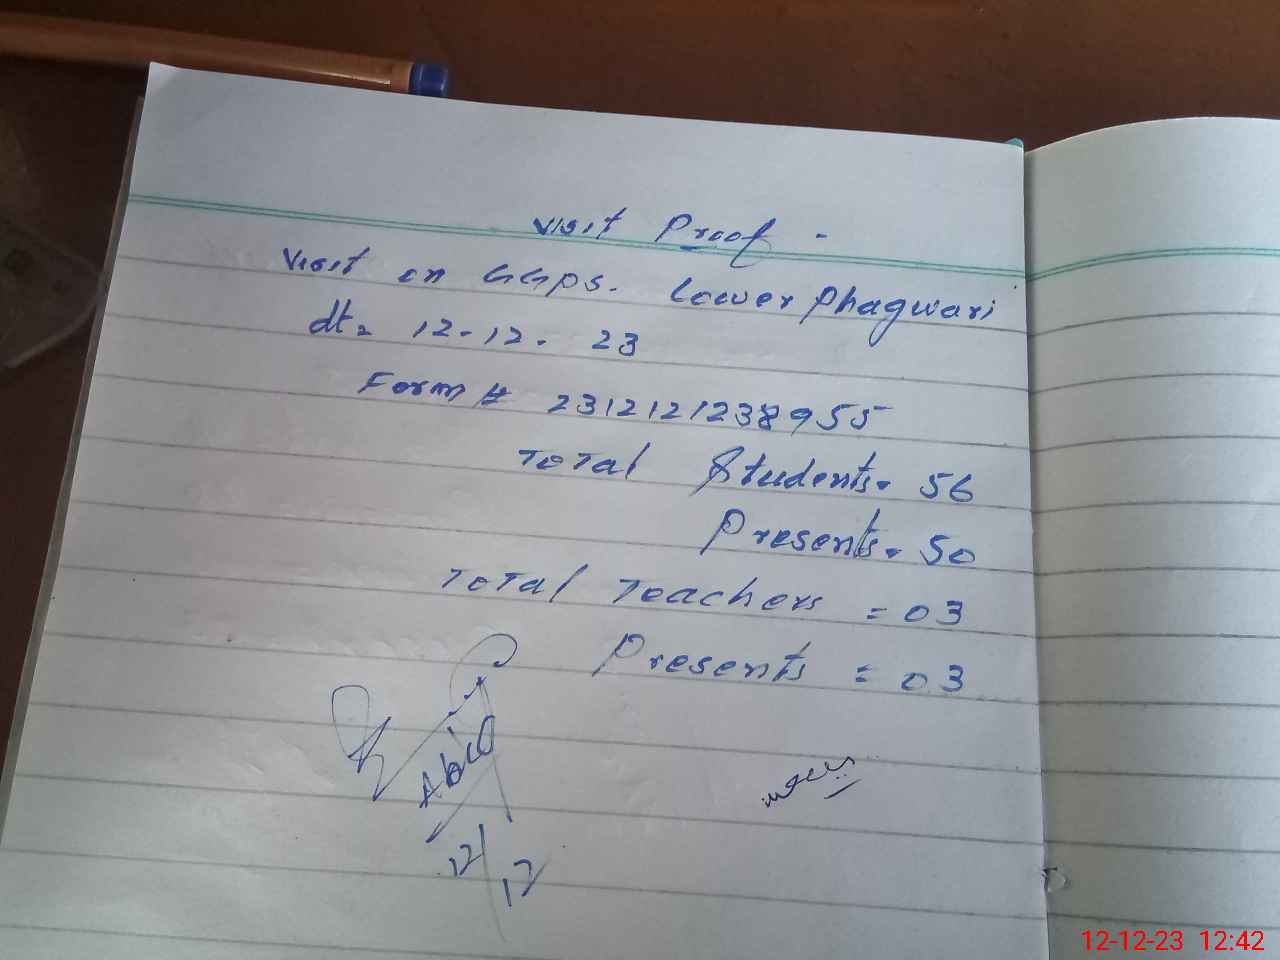 Visit Proof -
Visit on GGPS. Lower Phagwari
dt= 12-12-23
Form # 2312121238955
Total Students= 56
Presents= 50
Total Teachers = 03
Presents = 03
12/12
12-12-23 12:42